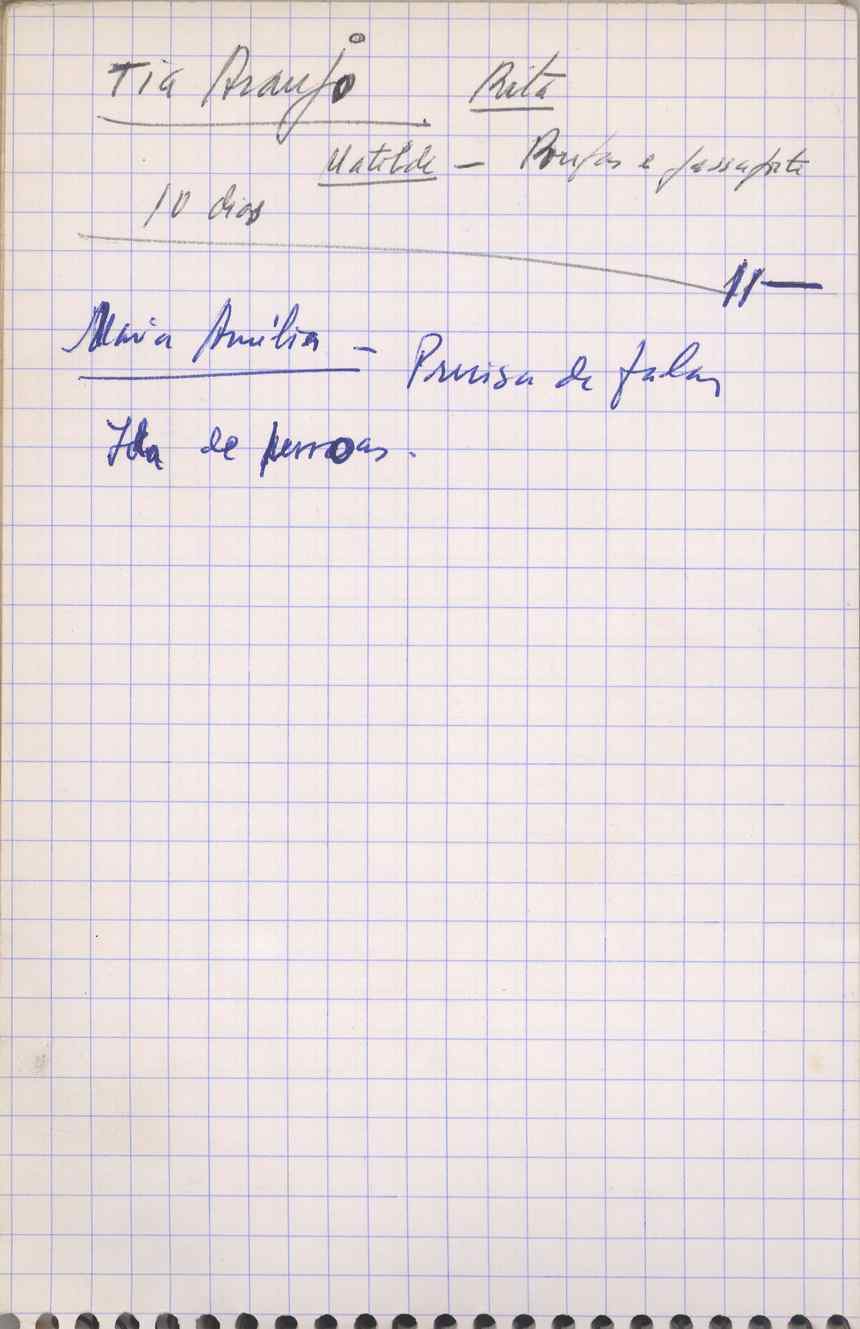 Tia Araujo Rita
Matilde - Roupas e passaporte
10 dias
Maria Amélia - Precisa de falar
Ida de pessoas.